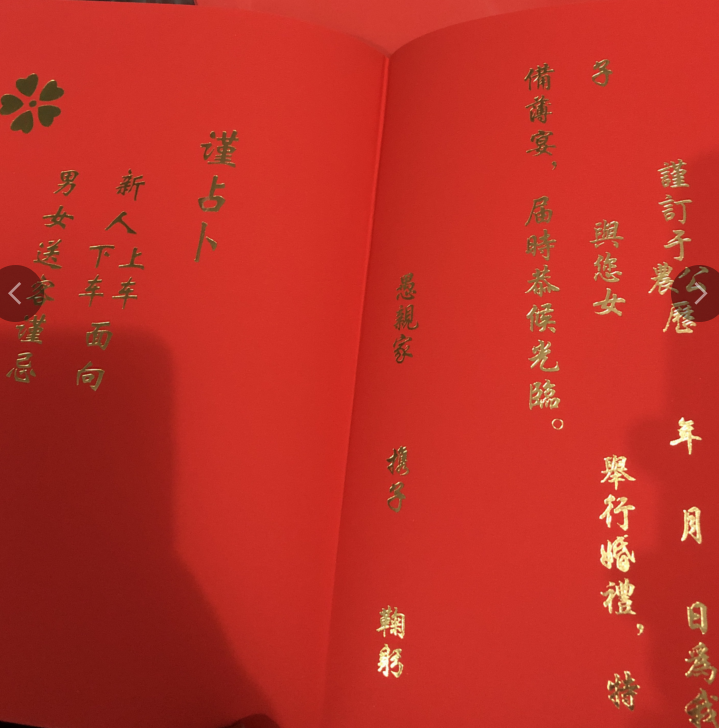 謹訂于公農歷 年 月 日為我
子 與您女 舉行婚禮，特
備薄宴，届時恭候光臨。
愚親家 携子 鞠躬
谨占卜
新人上车
下车面向
男女送客谨忌